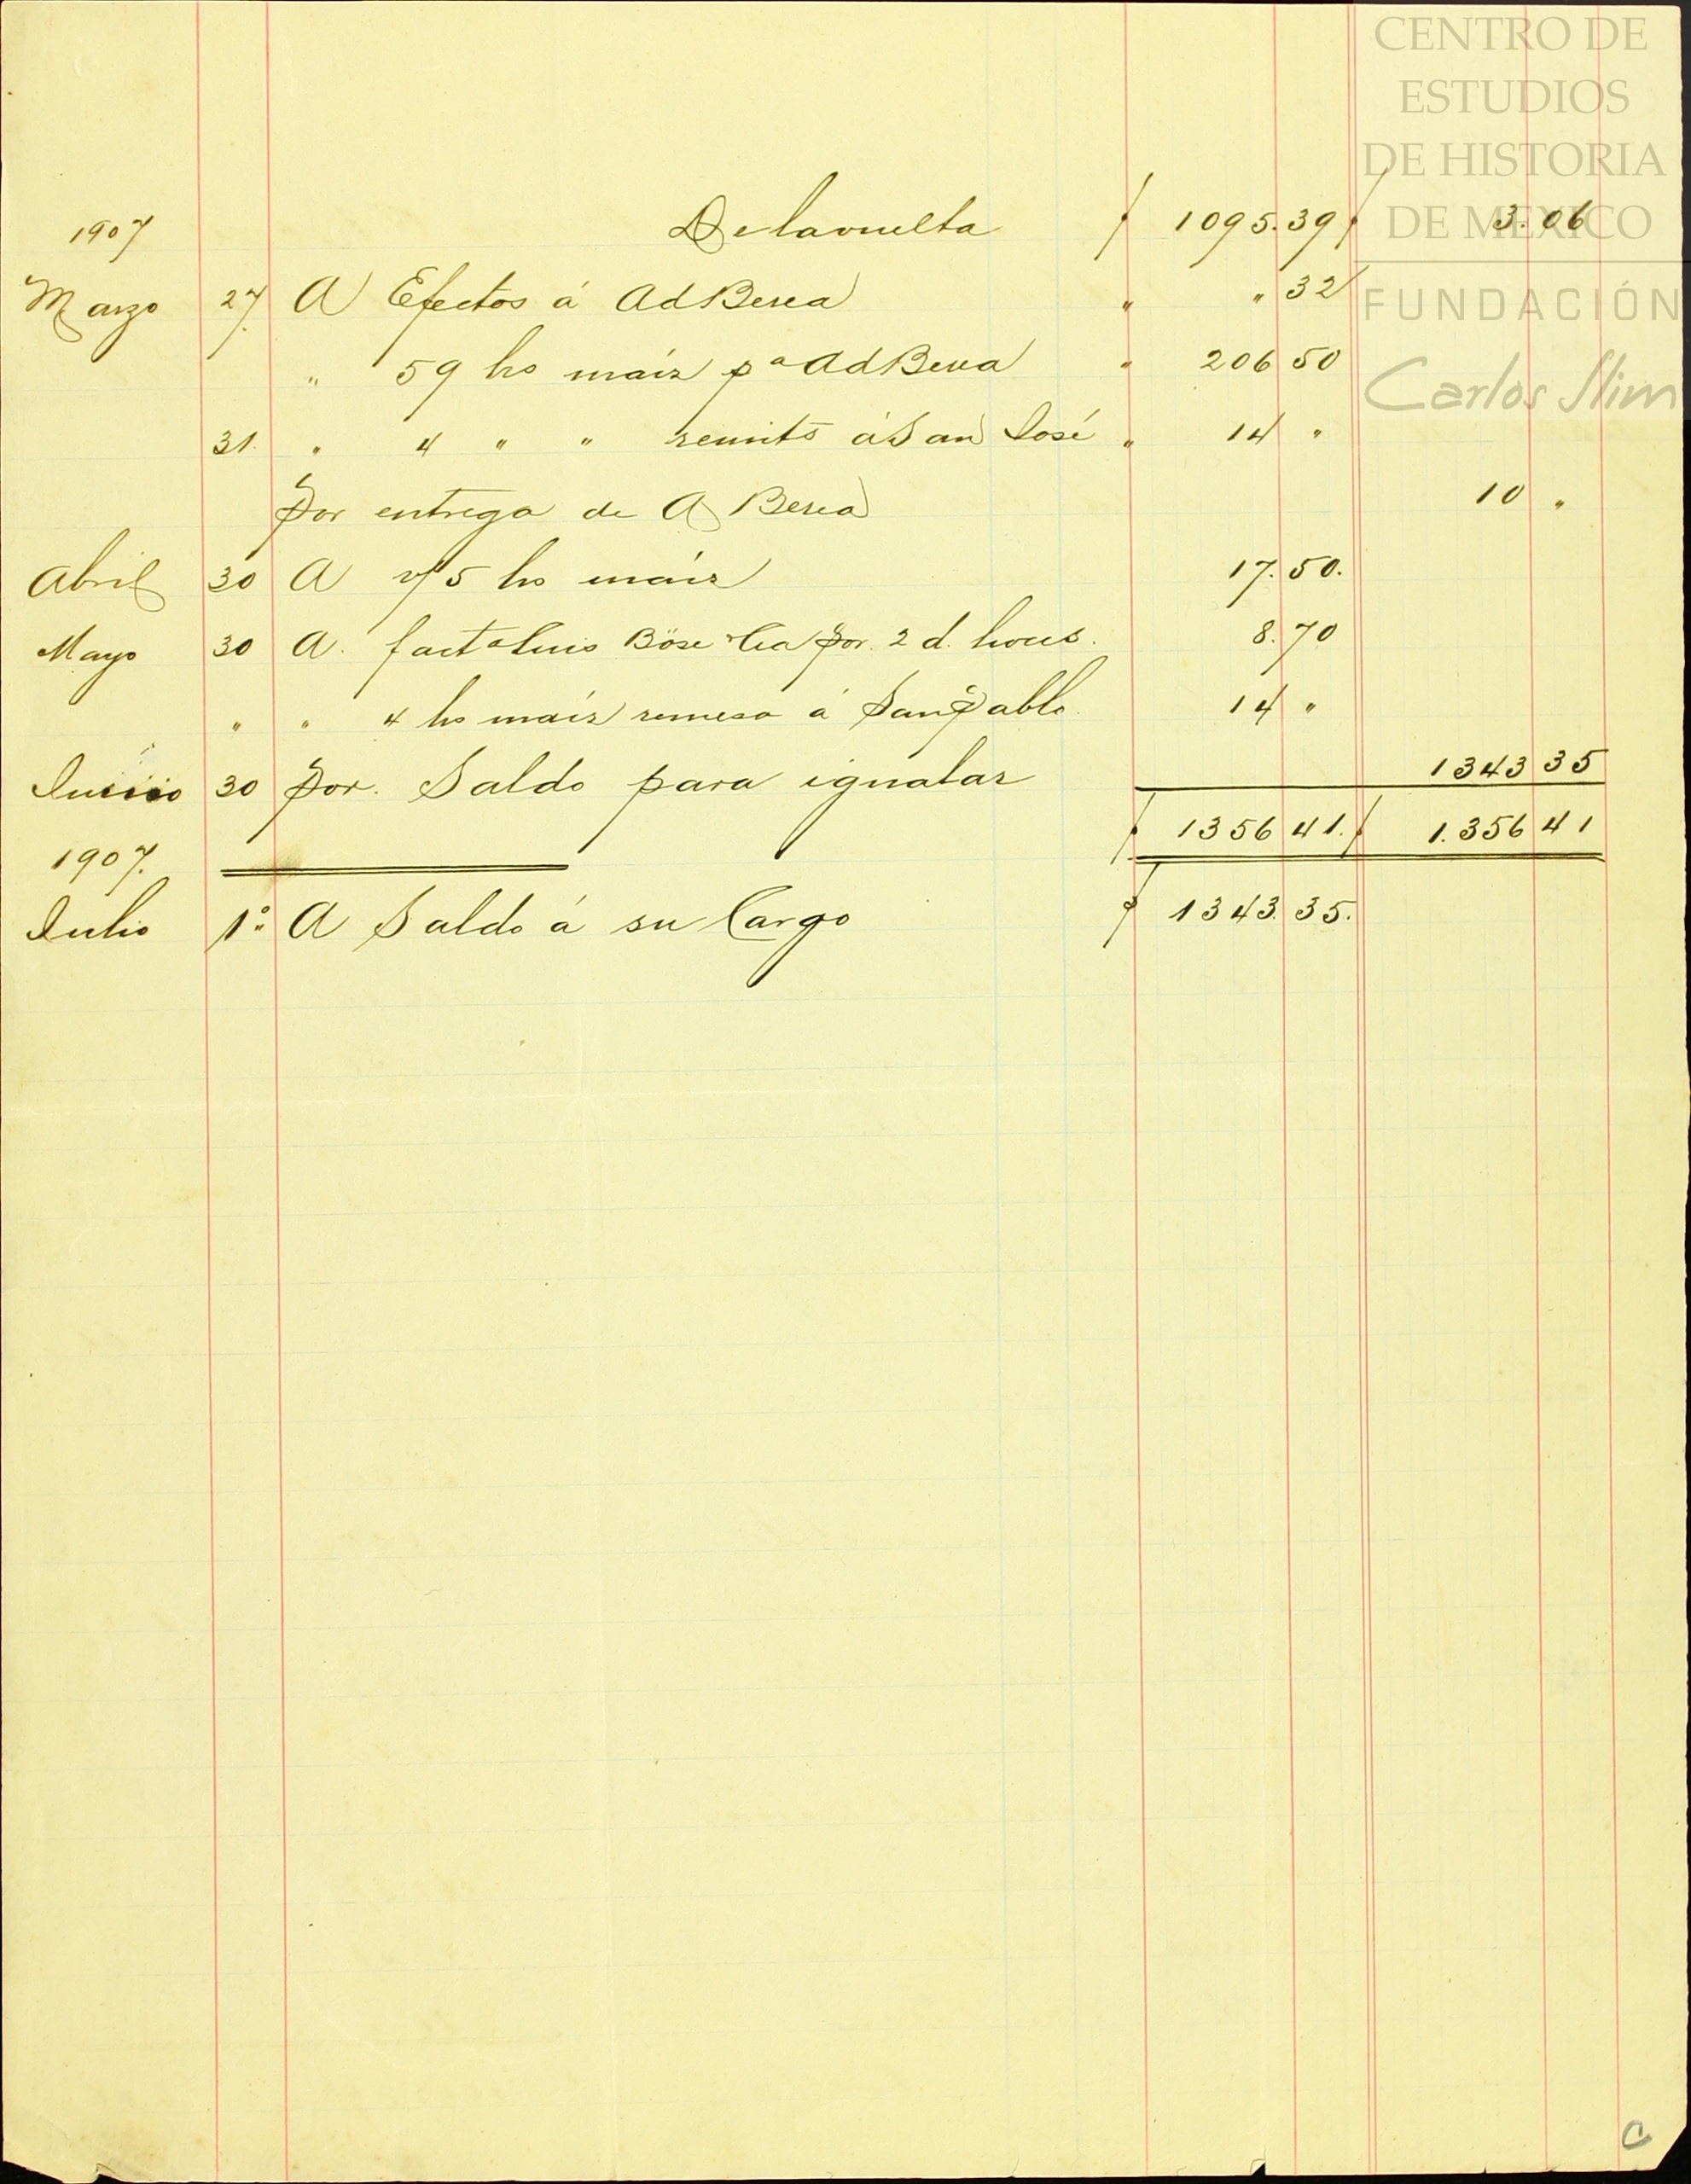 CENTRO DE
ESTUDIOS
DE HISTORIA
DE MEXICO
FUNDACIÓN
Carlos Slim
1907 De la vuelta $ 1095.39 $ 3.06
Marzo 27 A Efectos á Ad Berea " " 32
" 59 hs maíz pa Ad Berea " 206 50
31. " 4 " " remito á San José " 14 "
Por entrega de A Berea 10 "
Abril 30 A 5 hs maíz 17.50.
Mayo 30 A. facta Luis Böse Cia por 2 d. 8.70
" " 4 hs maíz remesa á San Pablo. 14 "
Junio 30 Por. Saldo para igualar 1343 35
$ 1356 41. $ 1.356 41
1907.
Julio 1º A Saldo á su Cargo $ 1343. 35.
C